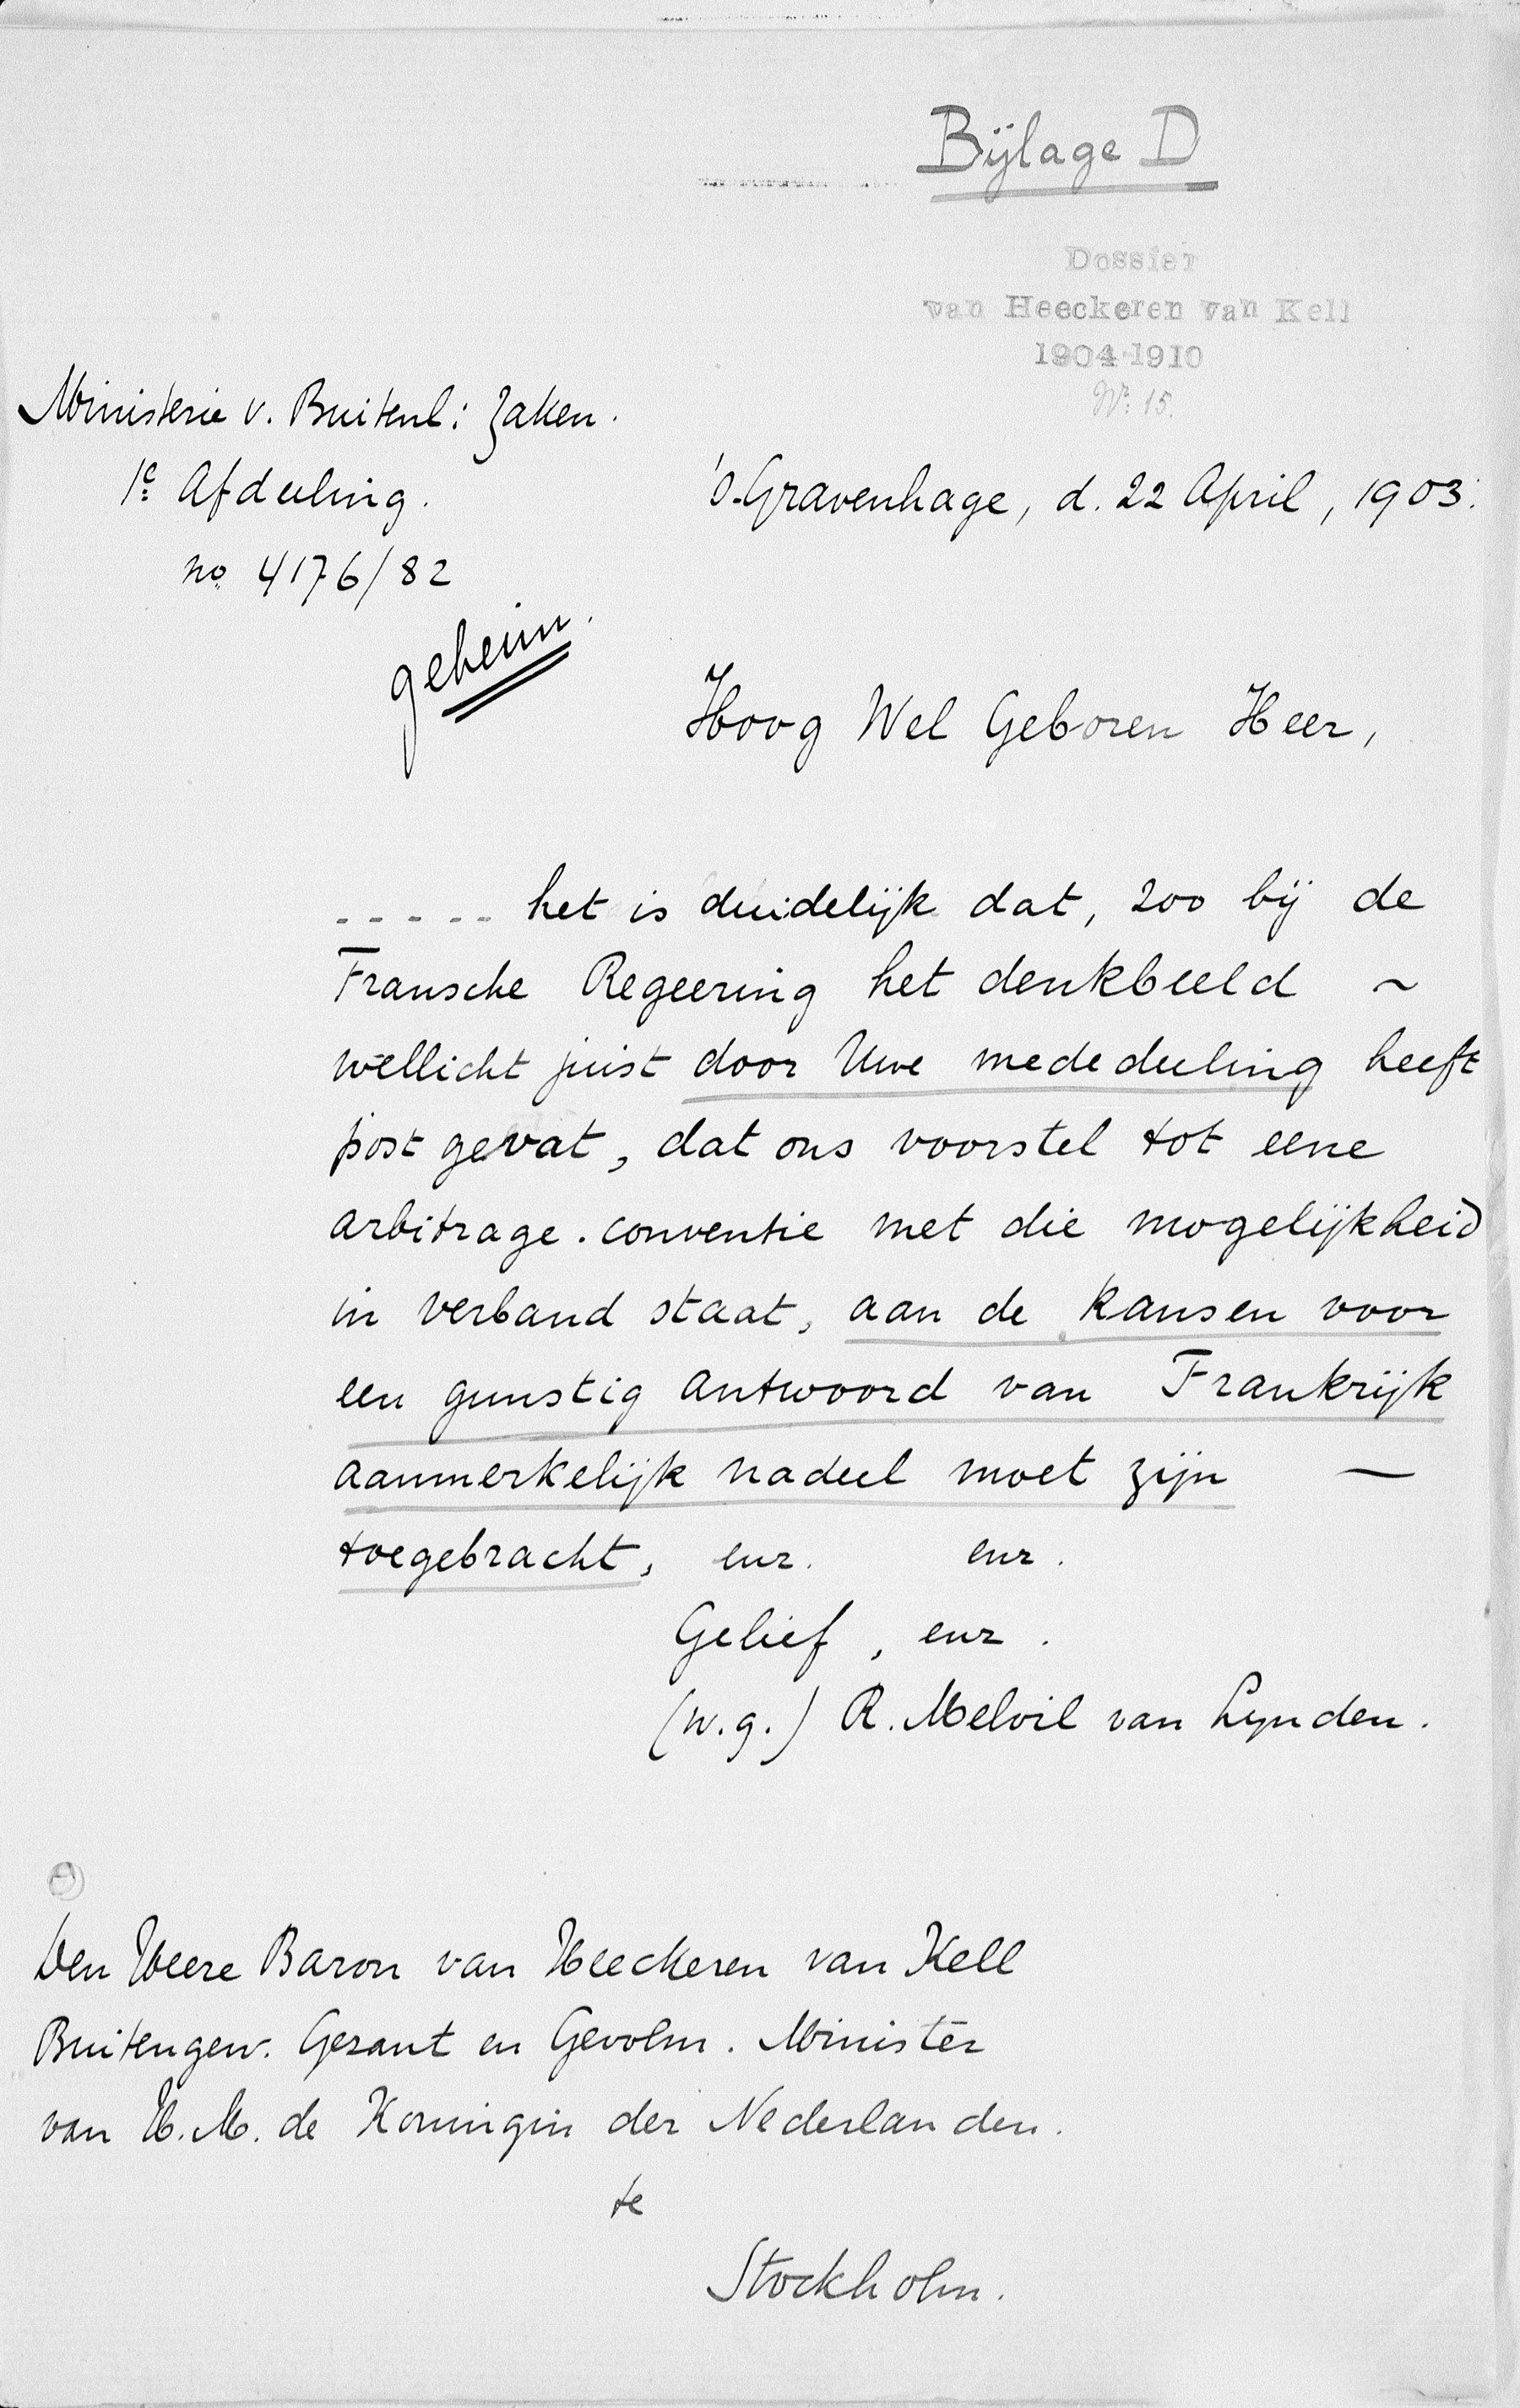 Bijlage D
Dossier
van Heeckeren van Kell
1904-1910
No: 15.
Ministerie v. Buitenl: Zaken.
1e Afdeeling.
's-Gravenhage, d. 22 April, 1903.
no 4176/82
geheim.
Hoog Wel Geboren Heer,
- - - - - het is duidelijk dat, zoo bij de
Fransche Regeering het denkbeeld ~
wellicht juist door Uwe mededeeling heeft
post gevat, dat ons voorstel tot eene
arbitrage-conventie met die mogelijkheid
in verband staat, aan de kansen voor
een gunstig antwoord van Frankrijk
aanmerkelijk nadeel moet zijn —
toegebracht, enz. enz.
Gelief, enz.
(w.g.) R. Melvil van Lynden.
Den Heere Baron van Heeckeren van Kell
Buitengew. Gezant en Gevolm. Minister
van H.M. de Koningin der Nederlanden.
te
Stockholm.